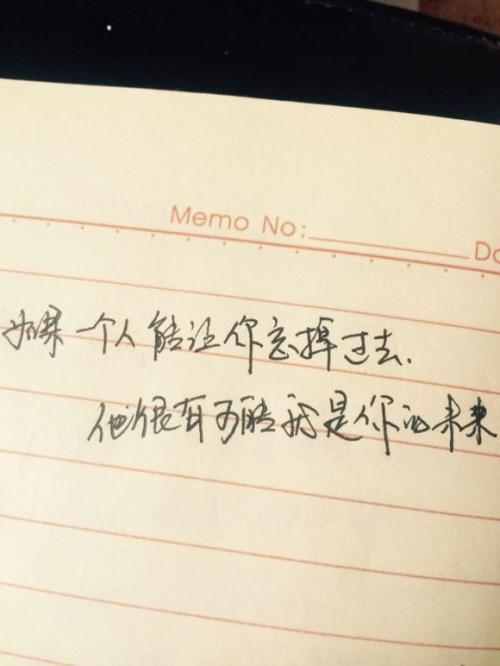 Memo No:
Da
如果一个人能让你忘掉过去.
他很有可能就是你的未来